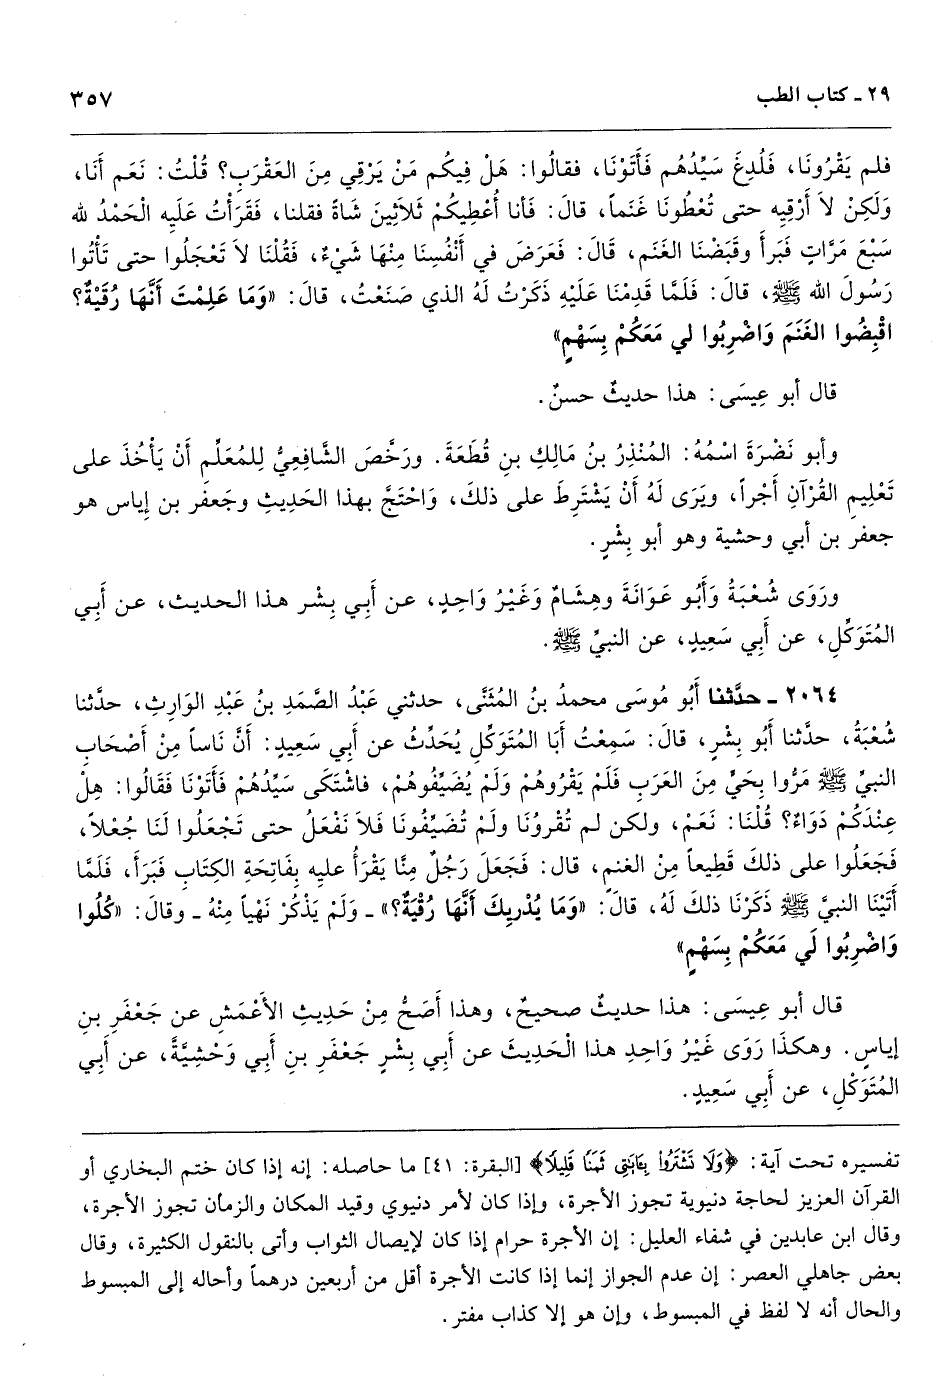 ٢٩ ـ كتاب الطب ٣٥٧
فلم يَقْرُونَا، فَلُدِغَ سَيِّدُهُم فَأَتَوْنَا، فقالُوا: هَلْ فِيكُم مَنْ يَرْقِي مِنَ العَقْرَبِ؟ قُلْتُ: نَعَم أَنَا،
وَلَكِنْ لاَ أَرْقِيهِ حتى تُعْطُونَا غَنَماً، قالَ: فَأَنا أُعْطِيكُمْ ثَلاَثِينَ شَاةً فقلنا، فَقَرَأْتُ عَلَيهِ الْحَمْدُ لله
سَبْعَ مَرَّاتٍ فَبَرأَ وقَبَضْنَا الغَنَم، قَالَ: فَعَرَضَ في أَنْفُسِنَا مِنْهَا شَيْءٌ، فَقُلْنَا لاَ تَعْجَلُوا حتى تَأْتُوا
رَسُولَ الله ﷺ، قالَ: فَلَمَّا قَدِمْنَا عَلَيْهِ ذَكَرْتُ لَهُ الذي صَنَعْتُ، قالَ: «وَمَا عَلِمْتَ أَنَّهَا رُقْيَةٌ؟
اقْبِضُوا الغَنَمَ وَاضْرِبُوا لي مَعَكُمْ بِسَهْمٍ»
قال أبو عِيسَى: هذا حديثٌ حسنٌ.
وأبو نَضْرَةَ اسْمُهُ: المُنْذِرُ بنُ مَالِكِ بنِ قُطَعَةَ. ورَخَّصَ الشَّافِعِيُّ لِلمُعَلِّمِ أَنْ يَأْخُذَ على
تَعْلِيمِ القُرْآنِ أَجْراً، ويَرَى لَهُ أَنْ يَشْتَرِطَ على ذلكَ، وَاحْتَجَّ بهذا الحَدِيثِ وجَعفَر بن إياس هو
جعفر بن أبي وحشية وهو أبو بِشْرٍ.
ورَوَى شُعْبَةُ وَأَبُو عَوَانَةَ وهِشَامٌ وَغَيْرُ وَاحِدٍ، عن أَبِي بِشْر هذا الحديث، عن أَبِي
المُتَوَكِّلِ، عن أَبِي سَعِيدٍ، عن النبيِّ ﷺ.
٢٠٦٤ ـ حدَّثنا أَبُو مُوسَى محمدُ بنُ المُثَنَّى، حدثني عَبْدُ الصَّمَدِ بنُ عَبْدِ الوَارِثِ، حدَّثنا
شُعْبَةُ، حدَّثنا أَبُو بِشْرٍ، قالَ: سَمِعْتُ أَبَا المُتَوَكِّلِ يُحَدِّثُ عن أَبِي سَعِيدٍ: أَنَّ نَاساً مِنْ أَصْحَابِ
النبيِّ ﷺ مَرُّوا بِحَيٍّ مِنَ العَرَبِ فَلَمْ يَقْرُوهُمْ وَلَمْ يُضَيِّفُوهُمْ، فاشْتَكَى سَيِّدُهُمْ فَأَتَوْنَا فَقَالُوا: هلْ
عِنْدَكُمْ دَوَاءٌ؟ قُلْنَا: نَعَمْ، ولكن لم تُقْرُونَا ولَمْ تُضَيِّفُونَا فَلاَ نَفْعَلُ حتى تَجْعَلُوا لَنَا جُعْلاً،
فَجَعَلُوا على ذلكَ قَطِيعاً مِنْ الغنمِ، قال: فَجَعَلَ رَجُلٌ مِنَّا يَقْرَأُ عليهِ بِفَاتِحَةِ الكِتَابِ فَبَرَأَ، فَلَمَّا
أَتَيْنَا النبيَّ ﷺ ذَكَرْنَا ذلكَ لَهُ، قالَ: «وَمَا يُدْرِيكَ أَنَّهَا رُقْيَةٌ؟» ـ وَلَمْ يَذْكُرْ نَهْياً مِنْهُ ـ وقالَ: «كُلُوا
وَاضْرِبُوا لَي مَعَكُمْ بِسَهْمٍ»
قال أبو عِيسَى: هذا حديثٌ صحيحٌ، وهذا أَصَحُّ مِنْ حَدِيثِ الأَعْمَشِ عن جَعْفَرِ بنِ
إياسٍ. وهكذَا رَوَى غَيْرُ وَاحِدٍ هذا الْحَدِيثَ عن أَبِي بِشْرٍ جَعْفَرِ بنِ أَبِي وَحْشِيَّةَ، عن أَبِي
المُتَوَكِّلِ، عن أَبِي سَعِيدٍ.
تفسيره تحت آية: ﴿وَلَا تَشْتَرُوا بِـَٔايَـٰتِى ثَمَنًا قَلِيلًا﴾ [البقرة: ٤١] ما حاصله: إنه إذا كان ختم البخاري أو
القرآن العزيز لحاجة دنيوية تجوز الأجرة، وإذا كان لأمر دنيوي وقيد المكان والزمان تجوز الأجرة،
وقال ابن عابدين في شفاء العليل: إن الأجرة حرام إذا كان لإيصال الثواب وأتى بالنقول الكثيرة، وقال
بعض جاهلي العصر: إن عدم الجواز إنما إذا كانت الأجرة أقل من أربعين درهماً وأحاله إلى المبسوط
والحال أنه لا لفظ في المبسوط، وإن هو إلا كذاب مفتر.